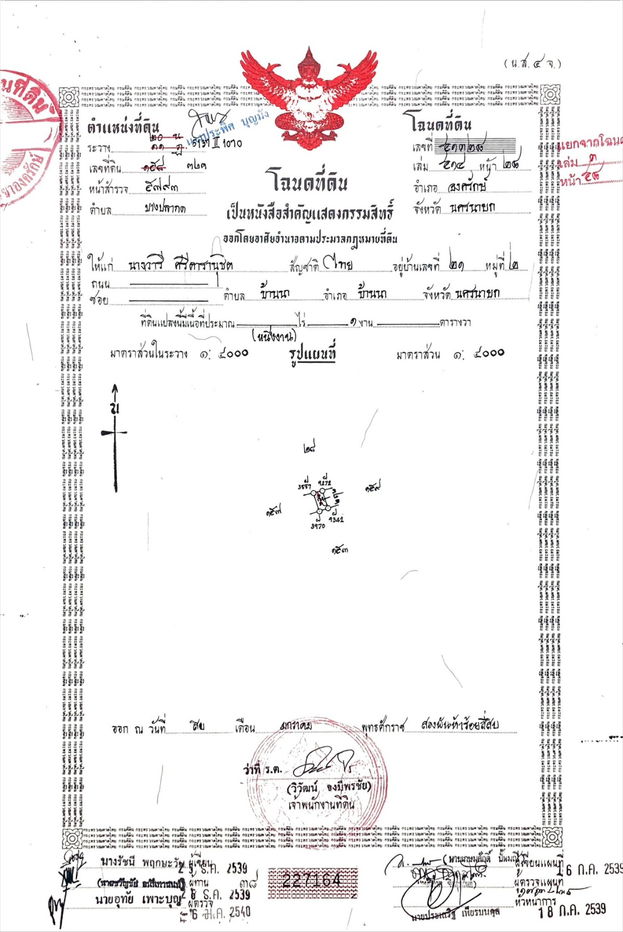 (น.ส. ๔ จ.)
ตำแหน่งที่ดิน
ระวาง 5137 II 1070
เลขที่ดิน ๑๕๘ ๓๒๑
หน้าสำรวจ ๕๗๙๓
ตำบล บางปลากด
โฉนดที่ดิน
เลขที่ ๔๑๓๒๘
เล่ม ๔๑๔ หน้า ๒๘
อำเภอ องครักษ์
จังหวัด นครนายก
แยกจากโฉนด
เล่ม ๓
หน้า ๕๘
โฉนดที่ดิน
เป็นหนังสือสำคัญแสดงกรรมสิทธิ์
ออกโดยอาศัยอำนาจตามประมวลกฎหมายที่ดิน
ให้แก่ นางวารี สัญชาติ ไทย อยู่บ้านเลขที่ ๒๑ หมู่ที่ ๒
ถนน
ซอย ตำบล บ้านนา อำเภอ บ้านนา จังหวัด นครนายก
ที่ดินแปลงนี้มีเนื้อที่ประมาณ ไร่ ๑ งาน ตารางวา
(หนึ่งงาน)
มาตราส่วนในระวาง ๑: ๔๐๐๐ รูปแผนที่ มาตราส่วน ๑: ๔๐๐๐
น
๒๘
3557 9272
๑๕๗ ๑๕๙
3970 9362
๑๕๓
ออก ณ วันที่ สิบ เดือน มกราคม พุทธศักราช สองพันห้าร้อยสี่สิบ
ว่าที่ ร.ต.
(วิวัฒน์ จงมีพรชัย)
เจ้าพนักงานที่ดิน
นางรัชนี พฤกษะวัน ผู้เขียน ธ.ค. 2539
ผู้ทาน ธ.ค. 2539
นายอุทัย เพาะบุญ ผู้ตรวจ 6 ม.ค. 2540
๓๘
227164
ผู้เขียนแผนที่ 16 ก.ค. 2539
ผู้ตรวจแผนที่
หัวหน้าการ 18 ก.ค. 2539